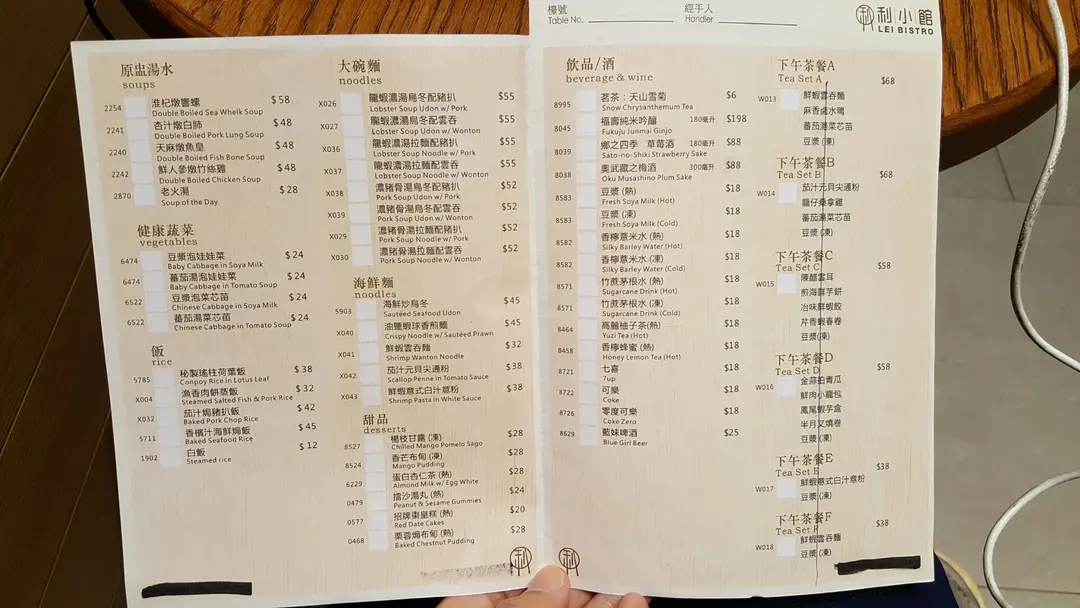 檯號
Table No.
經手人
Handler
利小館
LEI BISTRO
原盅湯水
soups
2254 淮杞燉響螺 $58
Double Boiled Sea Whelk Soup
2241 杏汁燉白肺 $48
Double Boiled Pork Lung Soup
2240 天麻燉魚皇 $48
Double Boiled Fish Bone Soup
2242 鮮人參燉竹絲雞 $48
Double Boiled Chicken Soup
2870 老火湯 $28
Soup of the Day
健康蔬菜
vegetables
6474 豆漿泡娃娃菜 $24
Baby Cabbage in Soya Milk
6474 蕃茄湯泡娃娃菜 $24
Baby Cabbage in Tomato Soup
6522 豆漿泡菜芯苗 $24
Chinese Cabbage in Soya Milk
6522 蕃茄湯菜芯苗 $24
Chinese Cabbage in Tomato Soup
飯
rice
5785 秘製瑤柱荷葉飯 $38
Conpoy Rice in Lotus Leaf
X004 漁香肉餅蒸飯 $32
Steamed Salted Fish & Pork Rice
X032 茄汁焗豬扒飯 $42
Baked Pork Chop Rice
5711 香檳汁海鮮焗飯 $45
Baked Seafood Rice
1902 白飯 $12
Steamed rice
大碗麵
noodles
X026 龍蝦濃湯烏冬配豬扒 $55
Lobster Soup Udon w/ Pork
X027 龍蝦濃湯烏冬配雲吞 $55
Lobster Soup Udon w/ Wonton
X036 龍蝦濃湯拉麵配豬扒 $55
Lobster Soup Noodle w/ Pork
X037 龍蝦濃湯拉麵配雲吞 $55
Lobster Soup Noodle w/ Wonton
X038 濃豬骨湯烏冬配豬扒 $52
Pork Soup Udon w/ Pork
X039 濃豬骨湯烏冬配雲吞 $52
Pork Soup Udon w/ Wonton
X029 濃豬骨湯拉麵配豬扒 $52
Pork Soup Noodle w/ Pork
X030 濃豬骨湯拉麵配雲吞 $52
Pork Soup Noodle w/ Wonton
海鮮麵
noodles
5903 海鮮炒烏冬 $45
Sautéed Seafood Udon
X040 油鹽蝦球香煎麵 $45
Crispy Noodle w/ Sautéed Prawn
X041 鮮蝦雲吞麵 $32
Shrimp Wanton Noodle
X042 茄汁元貝尖通粉 $38
Scallop Penne in Tomato Sauce
X043 鮮蝦意式白汁意粉 $38
Shrimp Pasta in White Sauce
甜品
desserts
8527 楊枝甘露 (凍) $28
Chilled Mango Pomelo Sago
8524 香芒布甸 (凍) $28
Mango Pudding
6229 蛋白杏仁茶 (熱) $28
Almond Milk w/ Egg White
0479 擂沙湯丸 (熱) $24
Peanut & Sesame Gummies
0577 招牌東皇糕 (熱) $20
Red Date Cakes
0468 栗蓉焗布甸 (熱) $28
Baked Chestnut Pudding
飲品/酒
beverage & wine
8995 茗茶：天山雪菊 $6
Snow Chrysanthemum Tea
8045 福壽純米吟釀 180毫升 $198
Fukuju Junmai Ginjo
8039 鄉之四季 草莓酒 180毫升 $88
Sato-no-Shiki Strawberry Sake
8038 奧武藏之梅酒 300毫升 $88
Oku Musashino Plum Sake
8583 豆漿 (熱) $18
Fresh Soya Milk (Hot)
8583 豆漿 (凍) $18
Fresh Soya Milk (Cold)
8582 香檸薏米水 (熱) $18
Silky Barley Water (Hot)
8582 香檸薏米水 (凍) $18
Silky Barley Water (Cold)
8571 竹蔗茅根水 (熱) $18
Sugarcane Drink (Hot)
8571 竹蔗茅根水 (凍) $18
Sugarcane Drink (Cold)
8464 高麗柚子茶(熱) $18
Yuzi Tea (Hot)
8458 香檸蜂蜜 (熱) $18
Honey Lemon Tea (Hot)
8721 七喜 $18
7up
8722 可樂 $18
Coke
8726 零度可樂 $18
Coke Zero
8629 藍妹啤酒 $25
Blue Girl Beer
下午茶餐A
Tea Set A $68
W013 鮮蝦雲吞麵
麻香鹵水鴨
蕃茄湯菜芯苗
豆漿(凍)
下午茶餐B
Tea Set B $68
W014 茄汁元貝尖通粉
籠仔桑拿雞
蕃茄湯菜芯苗
豆漿(凍)
下午茶餐C
Tea Set C $58
W015 陳醋雲耳
煎海鮮芋餅
冶味鮮蝦餃
芹香蝦春卷
豆漿(凍)
下午茶餐D
Tea Set D $58
W016 金蒜拍青瓜
鮮肉小籠包
鳳尾蝦芋盒
半月叉燒卷
豆漿(凍)
下午茶餐E
Tea Set E $38
W017 鮮蝦意式白汁意粉
豆漿(凍)
下午茶餐F
Tea Set F $38
W018 鮮蝦雲吞麵
豆漿(凍)